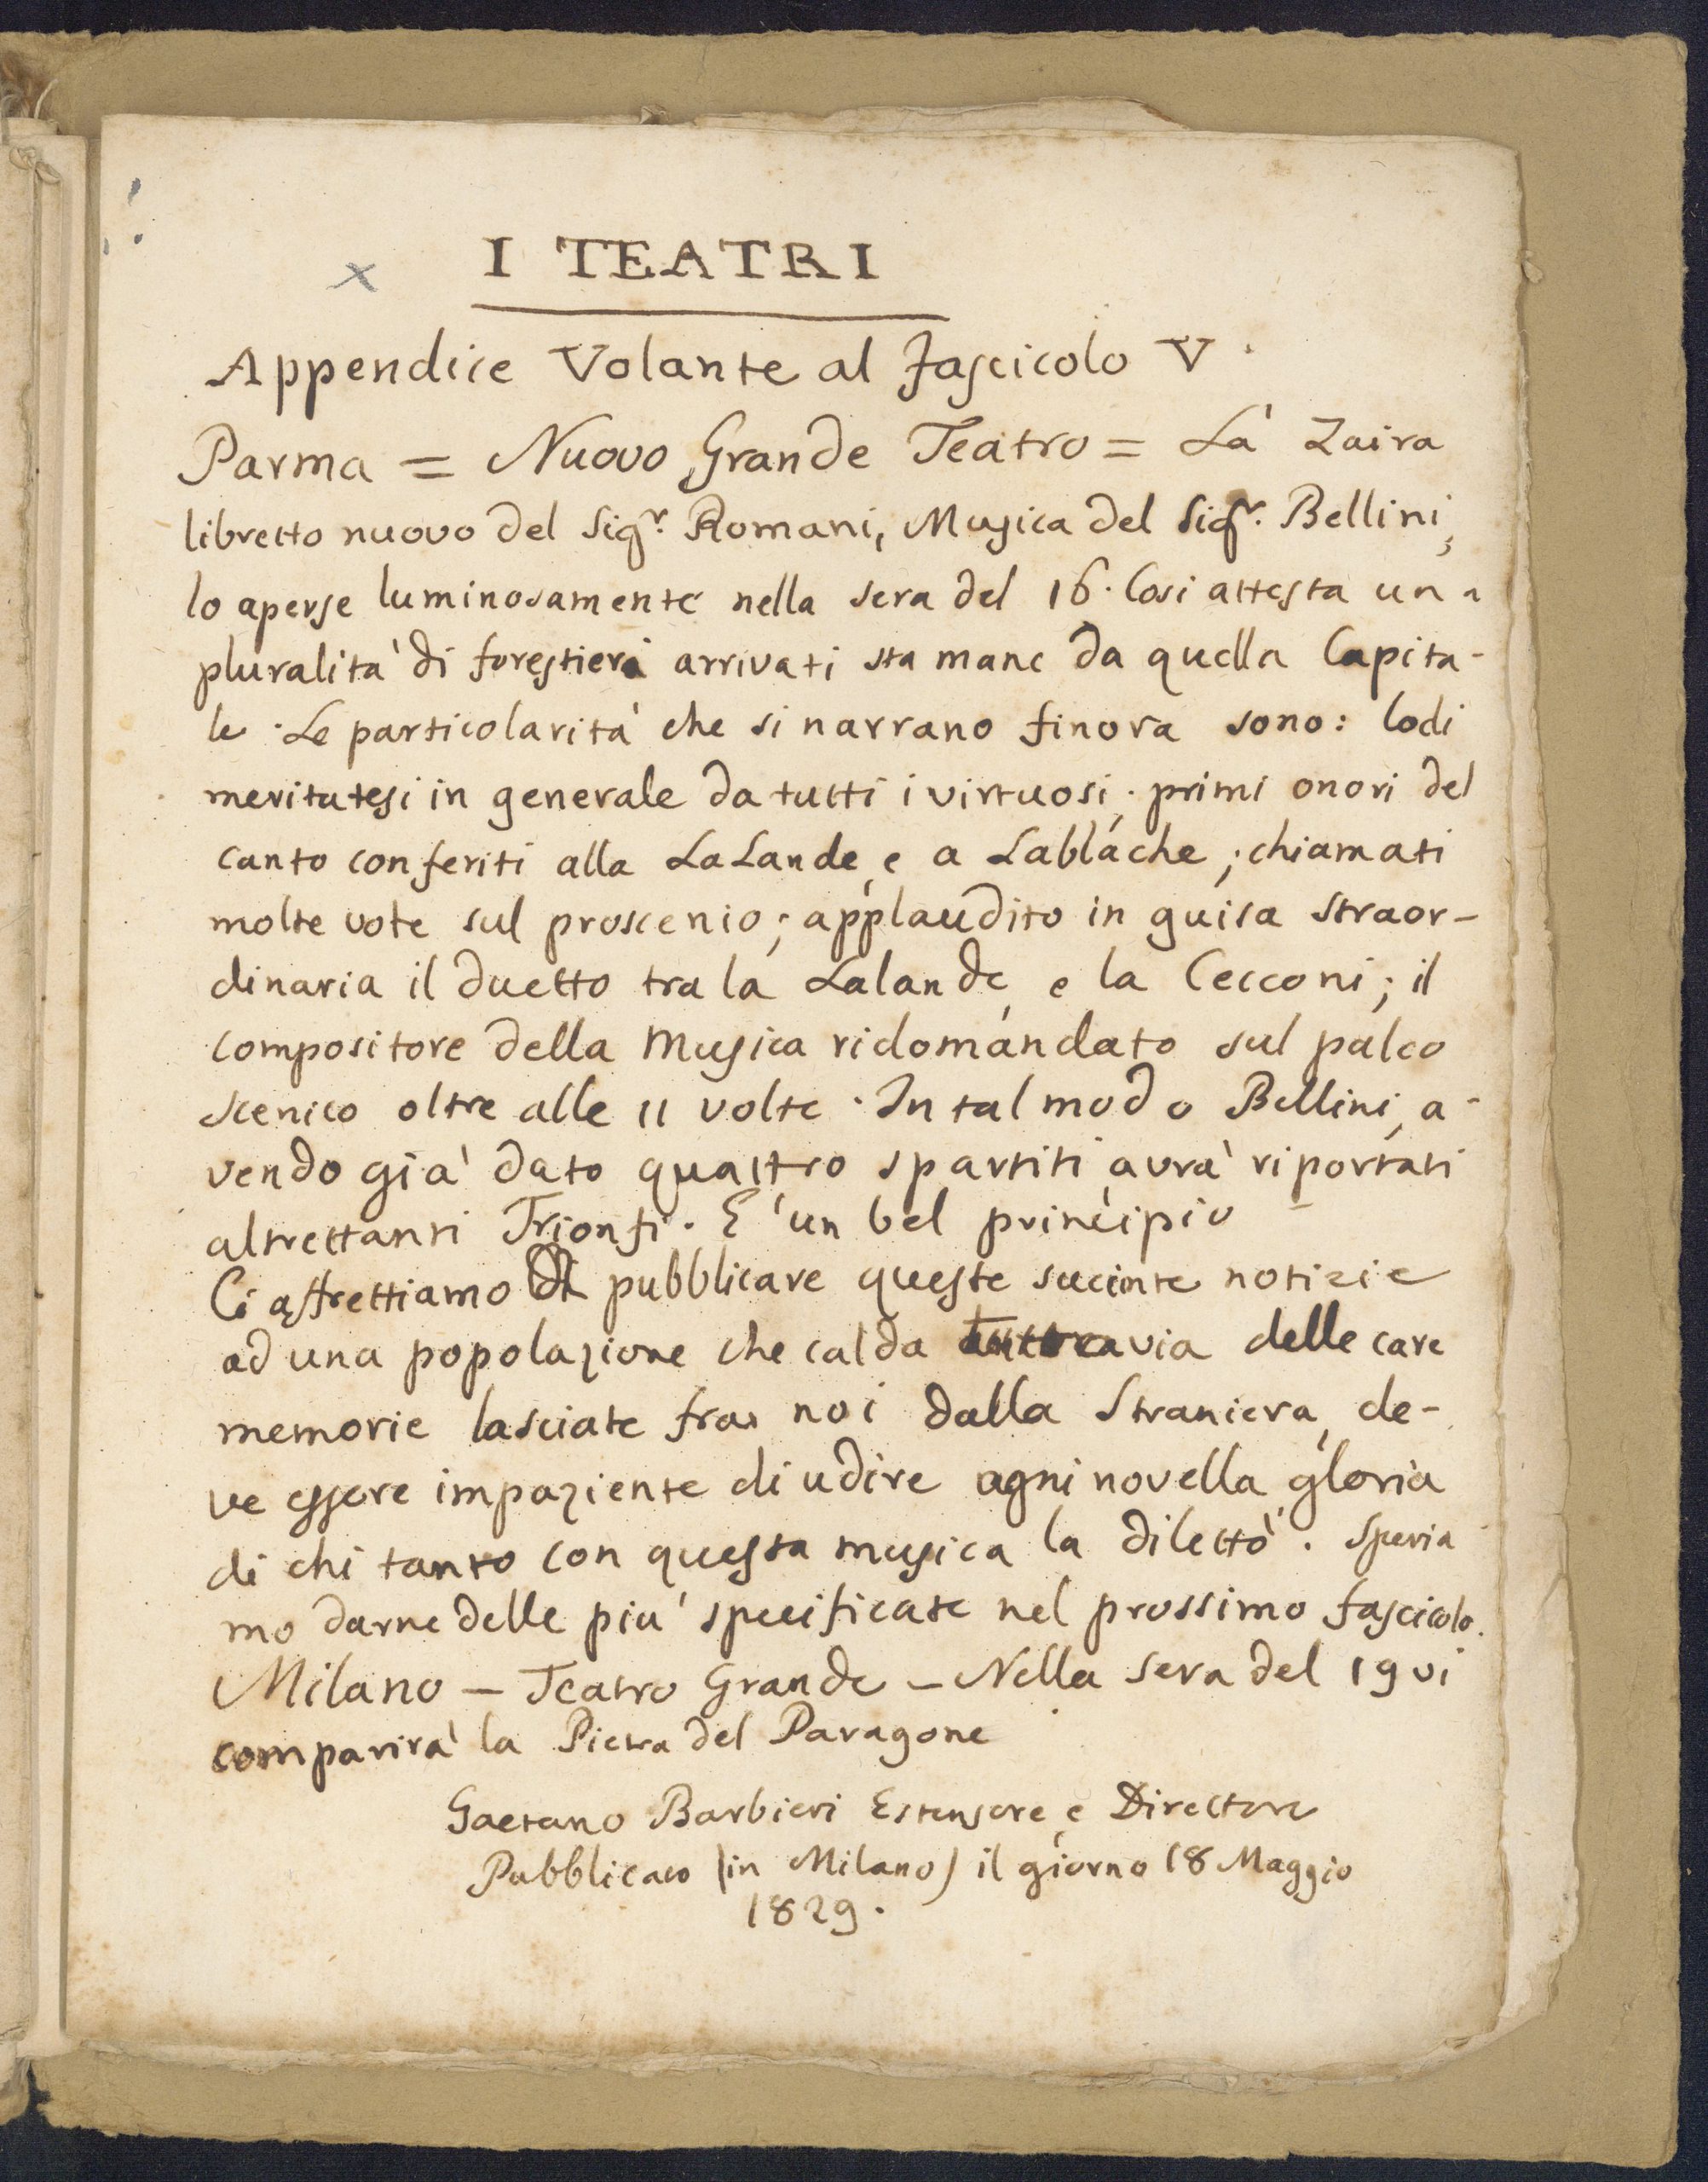 I TEATRI
Appendice Volante al fascicolo V.
Parma = Nuovo Grande Teatro = La Zaira
libretto nuovo del Sigr. Romani, Musica del Sigr. Bellini,
lo aperse luminosamente nella sera del 16. Cosi attesta una
pluralità di forestieri arrivati sta mane da quella Capita-
le. Le particolarità che si narrano finora sono: lodi
meritatesi in generale da tutti i virtuosi; primi onori del
canto conferiti alla LaLande, e a Lablache; chiamati
molte vote sul proscenio; applaudito in guisa straor-
dinaria il duetto tra la Lalande, e la Cecconi; il
compositore della Musica ridomandato sul palco
scenico oltre alle 11 volte. In tal modo Bellini, a-
vendo già dato quattro spartiti, avrà riportati
altrettanti Trionfi. E' un bel principio
Ci affrettiamo di pubblicare queste sucinte notizie
ad una popolazione che calda tuttavia delle care
memorie lasciate fra noi dalla Straniera, de-
ve essere impaziente di udire ogni novella gloria
di chi tanto con questa musica la dilettò. Speria-
mo darne delle più specificate nel prossimo fascicolo.
Milano - Teatro Grande - Nella sera del 19 vi
comparirà la Pietra del Paragone
Gaetano Barbieri Estensore, e Direttore
Pubblicato (in Milano) il giorno 18 Maggio
1829.